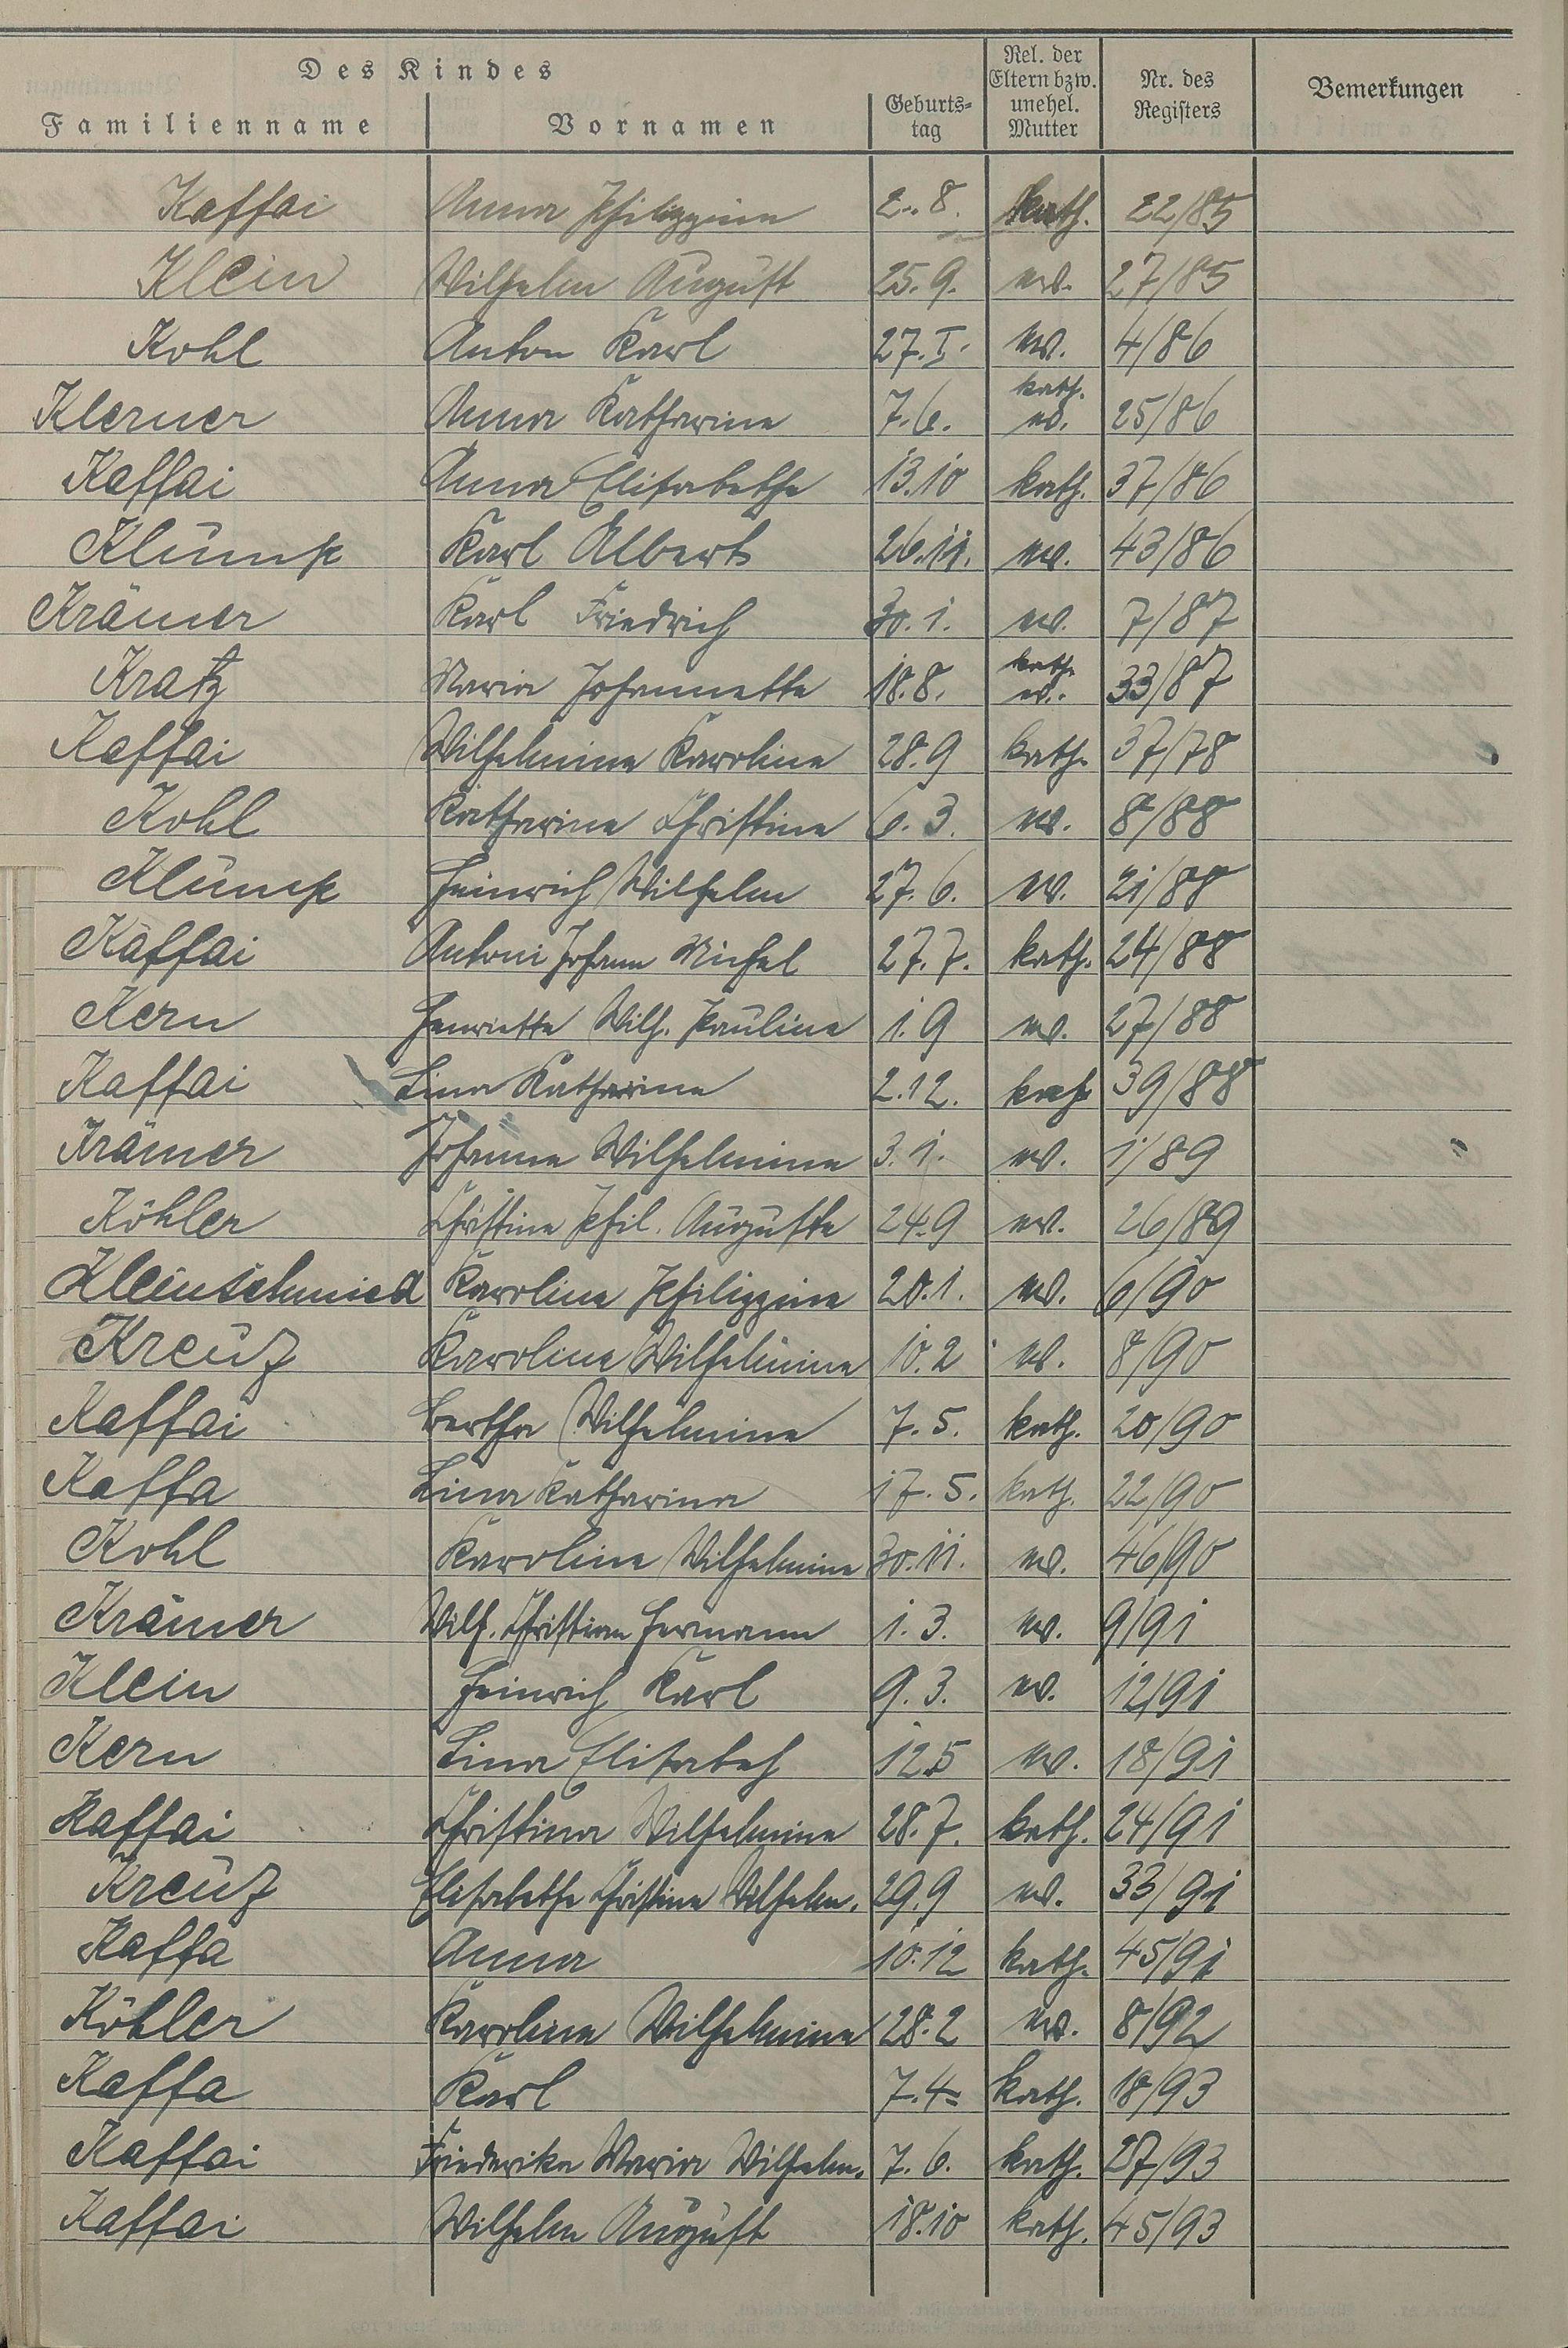 Des Kindes
Familienname Vornamen Geburts-tag Rel. der Eltern bzw. unehel. Mutter Nr. des Registers Bemerkungen
Kaffai Anna Philippine 2.8. kath. 22/85
Klein Wilhelm August 25.9. ev. 27/85
Kohl Anton Karl 27.I. ev. 4/86
Klerner Anna Katharine 7.6. kath. ev. 25/86
Kaffai Anna Elisabethe 13.10 kath. 37/86
Klump Karl Albert 26.11. ev. 43/86
Krämer Karl Friedrich 30.1. ev. 7/87
Kratz Maria Johannette 18.8. kath. ev. 33/87
Kaffai Wilhelmine Karoline 28.9 kath. 37/78
Kohl Katharine Christine 6.3. ev. 8/88
Klump Heinrich Wilhelm 27.6. ev. 21/88
Kaffai Antoni Johann Michel 27.7. kath. 24/88
Kern Henriette Wilh. Pauline 1.9 ev. 27/88
Kaffai Lina Katharine 2.12. kath 39/88
Krämer Johanna Wilhelmine 3.1. ev. 1/89
Köhler Christine Phil. Auguste 24.9 ev. 26/89
Kleinschmied Karoline Philippine 20.1. ev. 6/90
Kreuz Karoline Wilhelmine 10.2 ev. 8/90
Kaffai Bertha Wilhelmine 7.5. kath. 20/90
Kaffa Lina Katharina 17.5. kath. 22/90
Kohl Karoline Wilhelmine 30.11. ev. 46/90
Krämer Wilh. Christian Hermann 1.3. ev. 9/91
Klein Heinrich Karl 9.3. ev. 12/91
Kern Lina Elisabeh 12.5 ev. 18/91
Kaffai Christina Wilhelmine 28.7. kath. 24/91
Kreuz Elisabethe Christine Wilhelm. 29.9 ev. 33/91
Kaffa Anna 10.12 kath. 45/91
Köhler Karoline Wilhelmine 28.2 ev. 8/92
Kaffa Karl 7.4. kath. 18/93
Kaffai Friederike Maria Wilhelm. 7.6. kath. 27/93
Kaffai Wilhelm August 18.10 kath. 45/93